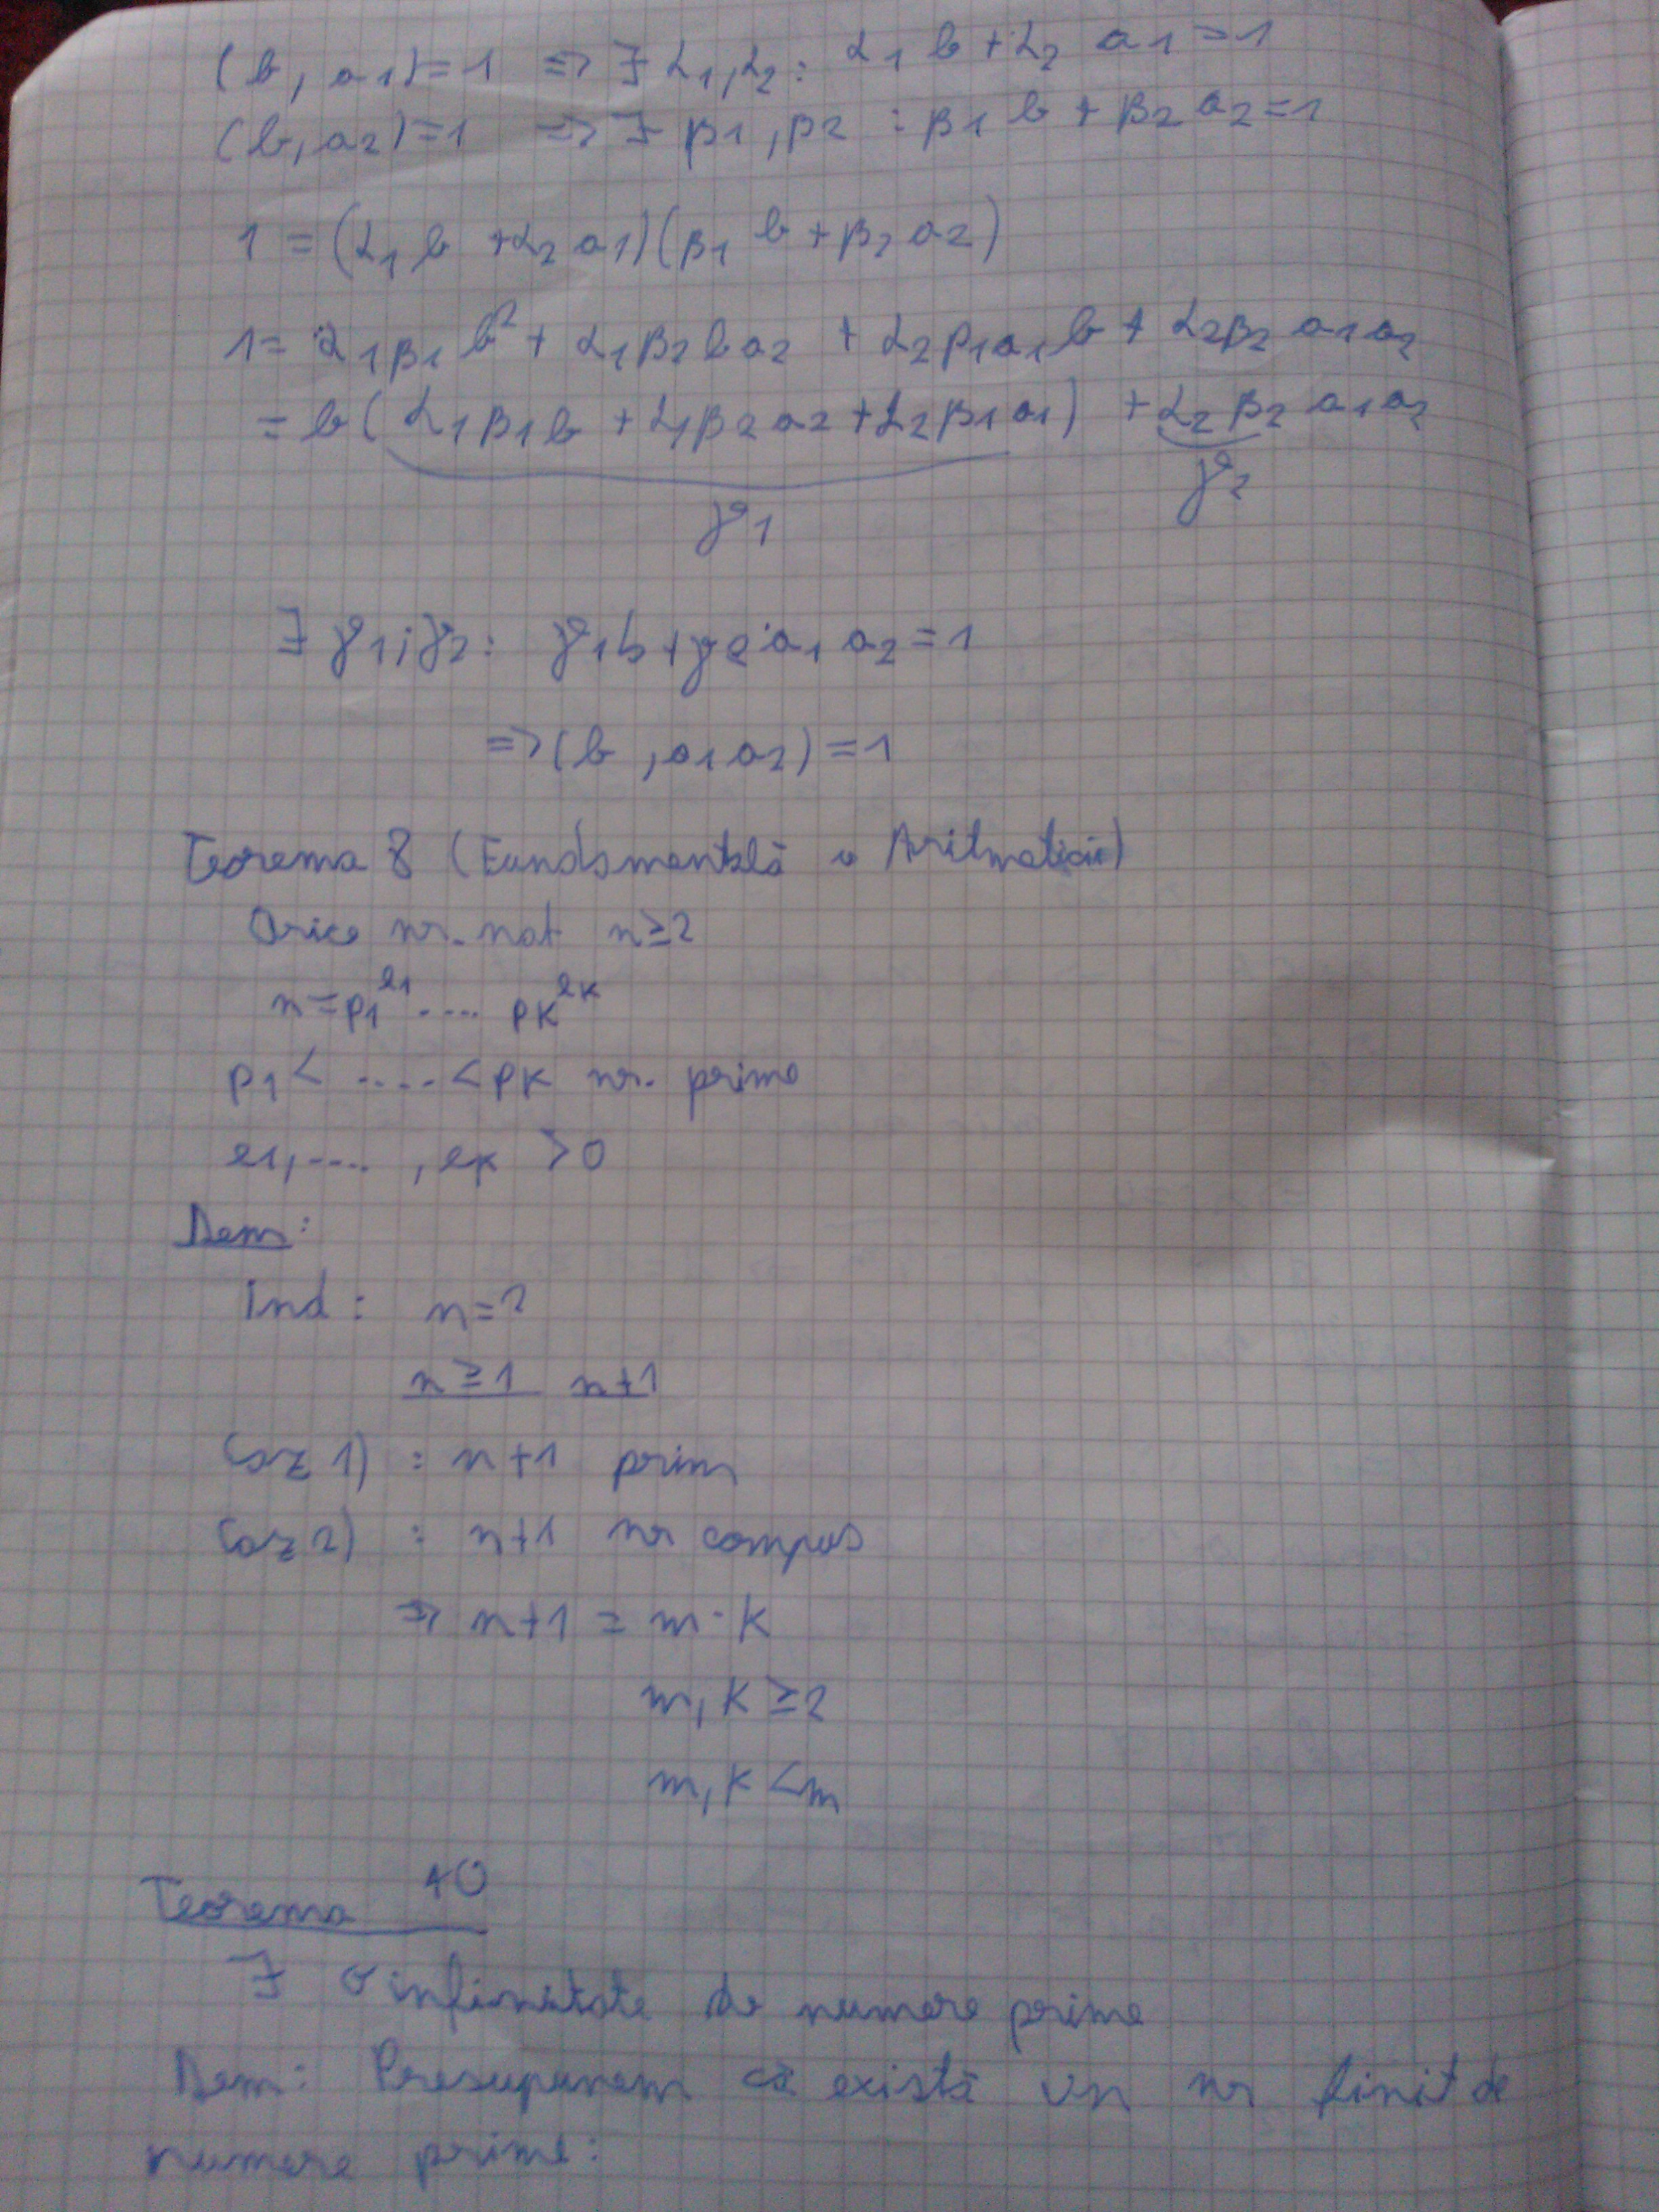 (b, a1)=1 => ∃ α1,α2: α1 b + α2 a1 = 1
(b, a2)=1 => ∃ β1, β2 : β1 b + β2 a2 = 1
1 = (α1 b + α2 a1)(β1 b + β2 a2)
1= α1β1 b² + α1β2 b a2 + α2β1a1b + α2β2 a1a2
= b( α1β1b + α1β2a2 + α2β1a1) + α2β2 a1a2
γ1 γ2
∃ γ1; γ2: γ1b + γ2 a1 a2 = 1
=> (b, a1a2) = 1
Teorema 8 (Fundamentală a Aritmeticii)
Orice nr. nat n≥2
n = p1^e1 .... pk^ek
p1 < .... < pk nr. prime
e1, ...., ek > 0
Dem:
Ind: n=2
n≥1 n+1
Caz 1) : n+1 prim
Caz 2) : n+1 nr compus
=> n+1 = m·k
m, k ≥2
m, k < n
Teorema 10
∃ o infinitate de numere prime
Dem: Presupunem că există un nr finit de
numere prime: